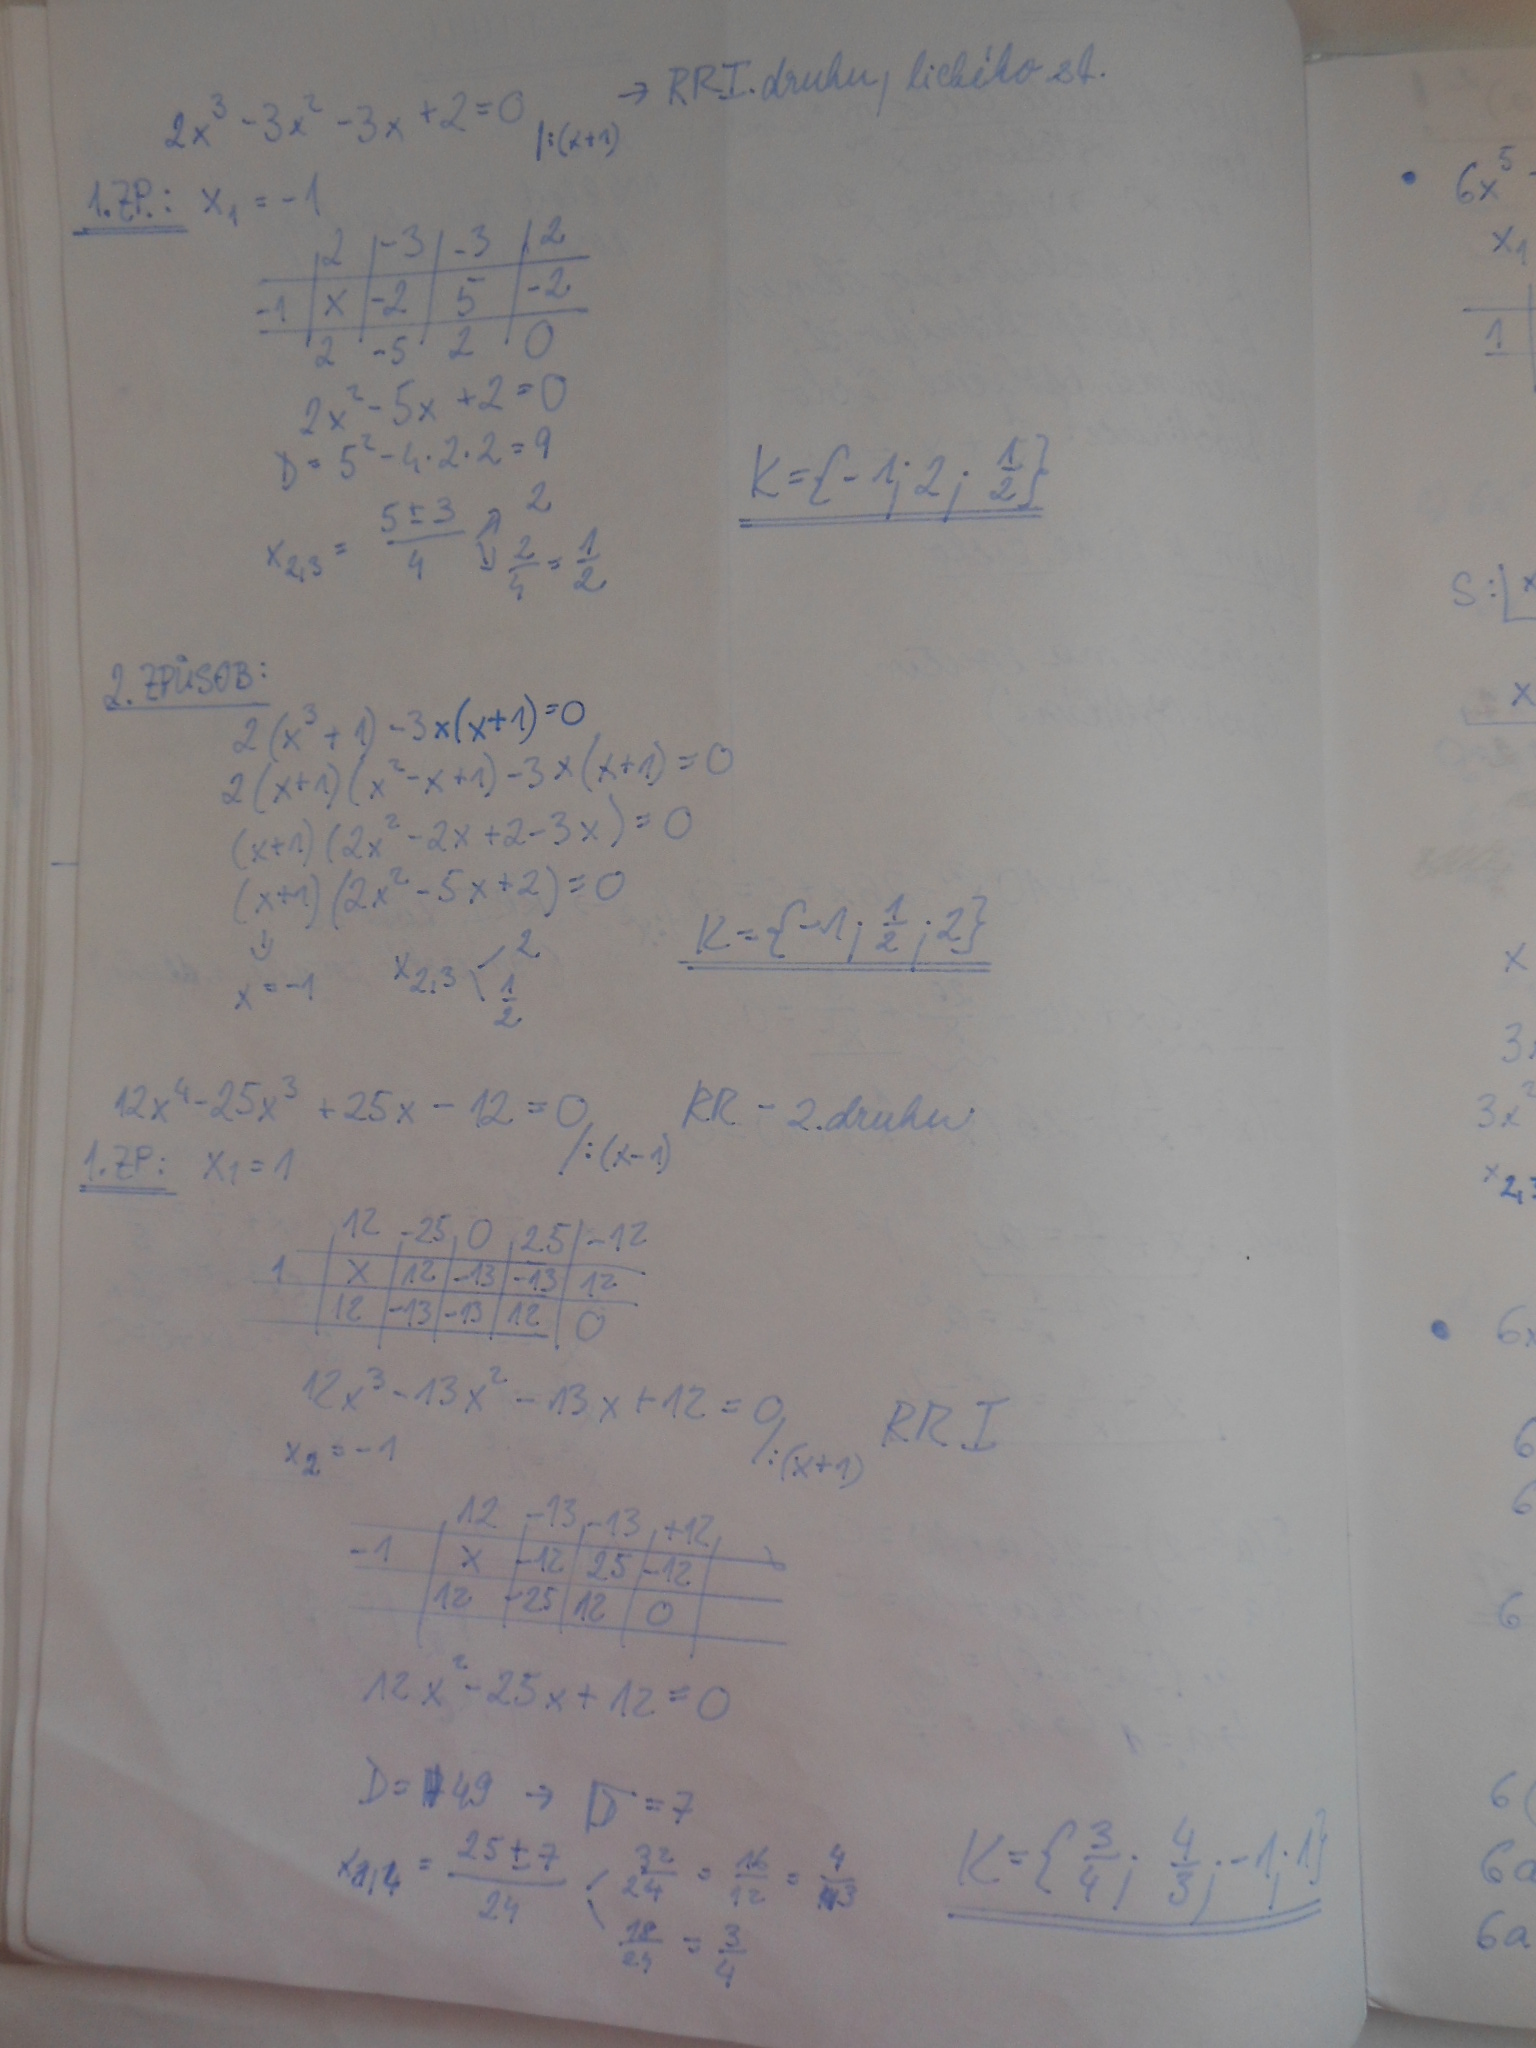 2x³ - 3x² - 3x + 2 = 0 /:(x+1) → RR I. druhu, lichého st.
1. ZP.: x₁ = -1
2 | -3 | -3 | 2
-1 | x | -2 | 5 | -2
2 | -5 | 2 | 0
2x² - 5x + 2 = 0
D = 5² - 4·2·2 = 9
x₂,₃ = (5±3)/4 ↗ 2
↘ 2/4 = 1/2
K = {-1; 2; 1/2}
2. ZPŮSOB:
2(x³ + 1) - 3x(x+1) = 0
2(x+1)(x² - x + 1) - 3x(x+1) = 0
(x+1)(2x² - 2x + 2 - 3x) = 0
(x+1)(2x² - 5x + 2) = 0
↓
x = -1 x₂,₃ 2
1/2
K = {-1; 1/2; 2}
12x⁴ - 25x³ + 25x - 12 = 0 /:(x-1) RR - 2. druhu
1. ZP: x₁ = 1
12 | -25 | 0 | 25 | -12
1 | x | 12 | -13 | -13 | 12
12 | -13 | -13 | 12 | 0
12x³ - 13x² - 13x + 12 = 0 /:(x+1) RR I
x₂ = -1
12 | -13 | -13 | +12
-1 | x | -12 | 25 | -12
12 | -25 | 12 | 0
12x² - 25x + 12 = 0
D = 49 → √D = 7
x₃,₄ = (25±7)/24 32/24 = 16/12 = 4/3
18/24 = 3/4
K = {3/4; 4/3; -1; 1}
6x⁵
x₁
1
S:
x
x
3x
3x²
x₂,₃
6x
6
6
6
6(
6a
6a